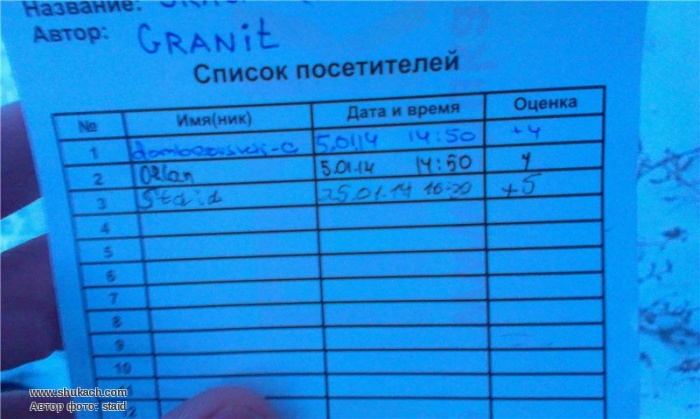 Название:
Автор: GRANIt
Список посетителей
№ Имя(ник) Дата и время Оценка
1 5.01.14 14:50 +4
2 Orlan 5.01.14 14:50 4
3 Staid 25.01.14 16-20 +5
4
5
6
7
8
9
10
www.shukach.com
Автор фото: staid